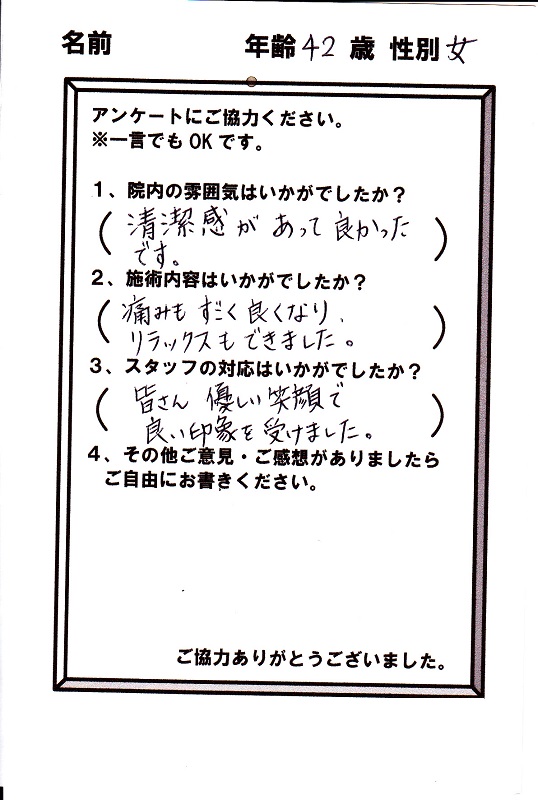 名前 年齢 42 歳 性別 女
アンケートにご協力ください。
※一言でもOKです。
1、院内の雰囲気はいかがでしたか？
(清潔感が あって 良かった
です。)
2、施術内容はいかがでしたか？
(痛みも すごく 良くなり、
リラックスも できました。)
3、スタッフの対応はいかがでしたか？
(皆さん 優しい 笑顔で
良い印象を受けました。)
4、その他ご意見・ご感想がありましたら
ご自由にお書きください。
ご協力ありがとうございました。